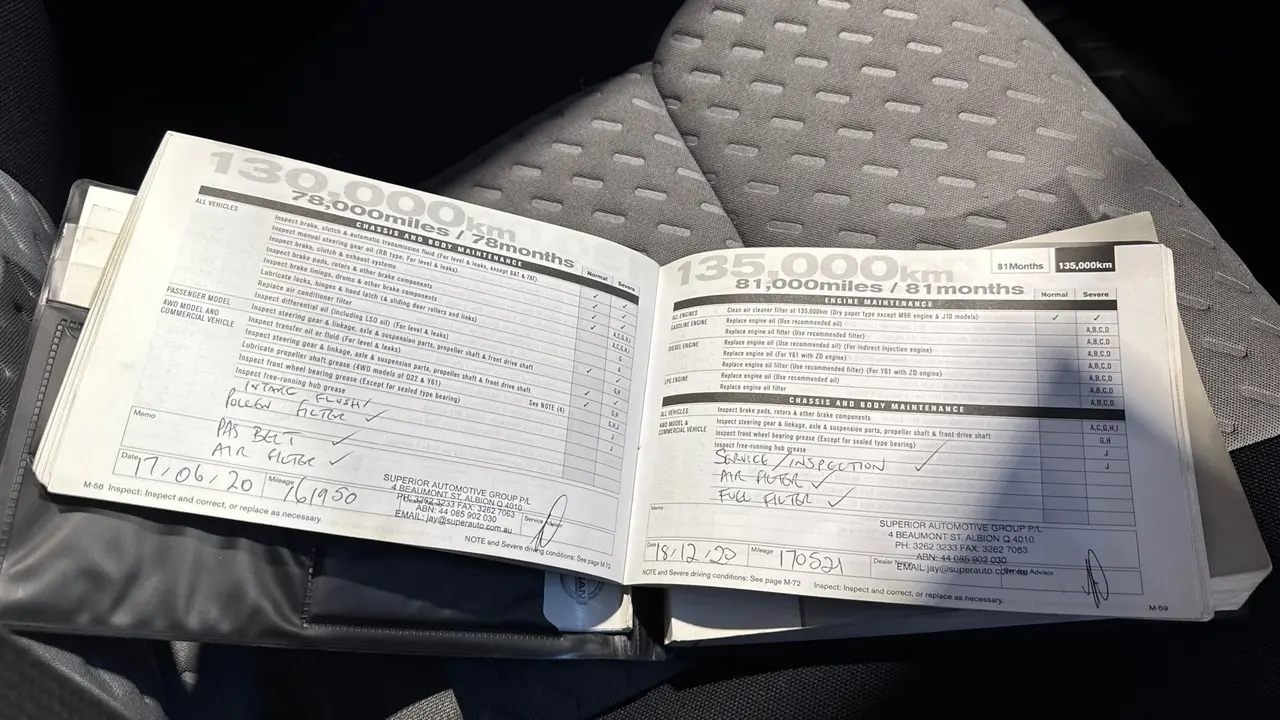 130,000km
78,000miles / 78months
CHASSIS AND BODY MAINTENANCE
Normal Severe
ALL VEHICLES
Inspect brake, clutch & automatic transmission fluid (For level & leaks, except 8AT & 7AT)
Inspect manual steering gear oil (RB type, For level & leaks)
Inspect brake, clutch & exhaust systems
Inspect brake pads, rotors & other brake components
Inspect brake linings, drums & other brake components
Lubricate locks, hinges & hood latch (& sliding door rollers and links)
Replace air conditioner filter
PASSENGER MODEL
Inspect differential oil (including LSD oil) (For level & leaks)
4WD MODEL AND COMMERCIAL VEHICLE
Inspect steering gear & linkage, axle & suspension parts, propeller shaft & front drive shaft
Inspect transfer oil or fluid (For level & leaks)
Inspect steering gear & linkage, axle & suspension parts, propeller shaft & front drive shaft
Lubricate propeller shaft grease (4WD models of D22 & Y61)
Inspect front wheel bearing grease (Except for sealed type bearing) See NOTE (4)
Inspect free-running hub grease
INTAKE FLUSH ✓
POLLEN FILTER ✓
Memo
PAS BELT ✓
AIR FILTER ✓
Date 17/06/20 Mileage 161950
SUPERIOR AUTOMOTIVE GROUP P/L
4 BEAUMONT ST. ALBION Q 4010
PH: 3262 3233 FAX: 3262 7063
ABN: 44 085 902 030
EMAIL: jay@superauto.com.au
Service Advisor
M-68 Inspect: Inspect and correct, or replace as necessary.
NOTE and Severe driving conditions: See page M-72
135,000km
81,000miles / 81months
81Months 135,000km
ENGINE MAINTENANCE
Normal Severe
ALL ENGINES
Clean air cleaner filter at 135,000km (Dry paper type except M9R engine & J10 models) ✓ ✓
GASOLINE ENGINE
Replace engine oil (Use recommended oil) A,B,C,D
Replace engine oil filter (Use recommended filter) A,B,C,D
DIESEL ENGINE
Replace engine oil (Use recommended oil) (For indirect injection engine) A,B,C,D
Replace engine oil (For Y61 with ZD engine) A,B,C,D
Replace engine oil filter (Use recommended filter) (For Y61 with ZD engine) A,B,C,D
LPG ENGINE
Replace engine oil (Use recommended oil) A,B,C,D
Replace engine oil filter A,B,C,D
CHASSIS AND BODY MAINTENANCE
ALL VEHICLES
Inspect brake pads, rotors & other brake components A,C,G,H,I
4WD MODEL & COMMERCIAL VEHICLE
Inspect steering gear & linkage, axle & suspension parts, propeller shaft & front drive shaft G,H
Inspect front wheel bearing grease (Except for sealed type bearing) J
Inspect free-running hub grease J
SERVICE/INSPECTION ✓
AIR FILTER ✓
FULL FILTER ✓
Memo
SUPERIOR AUTOMOTIVE GROUP P/L
4 BEAUMONT ST. ALBION Q 4010
PH: 3262 3233 FAX: 3262 7063
ABN: 44 085 902 030
EMAIL:jay@superauto.com.au
Date 18/12/20 Mileage 170521
NOTE and Severe driving conditions: See page M-72 Inspect: Inspect and correct, or replace as necessary.
M-69